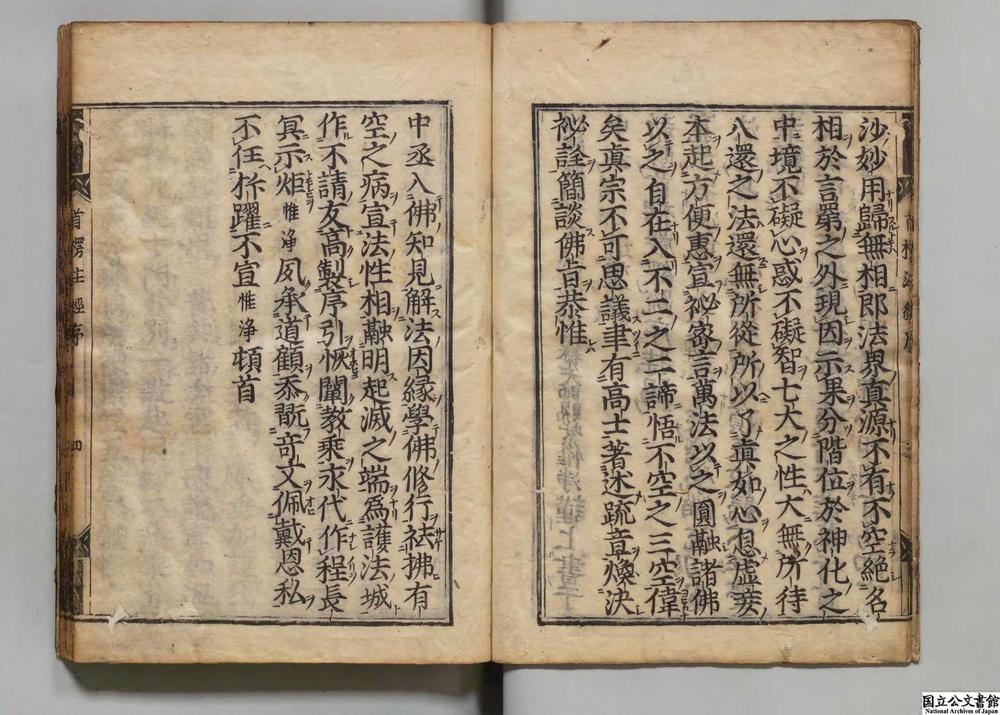 沙妙用歸無相即法界真源不有不空絶名
相於言第之外現因示果分階位於神化之
中境不礙心惑不礙智七大之性大無所待
八還之法還無所從所以了真如心息虛妄
本起方便惠宣祕密言萬法以之圓融諸佛
以之自在入不二之二諦悟不空之三空偉
矣真宗不可思議聿有高士著述疏章煥決
祕詮簡談佛旨恭惟
中丞入佛知見解法因縁學佛修行祛拂有
空之病宣法性相融明起滅之端爲護法城
作不請友高製序引恢闡教乘永代作程長
冥示炬惟淨夙承道顧忝翫竒文佩戴恩私
不任忭躍不宣惟淨頓首
首楞 經序
四
国立公文書館
National Archives of Japan